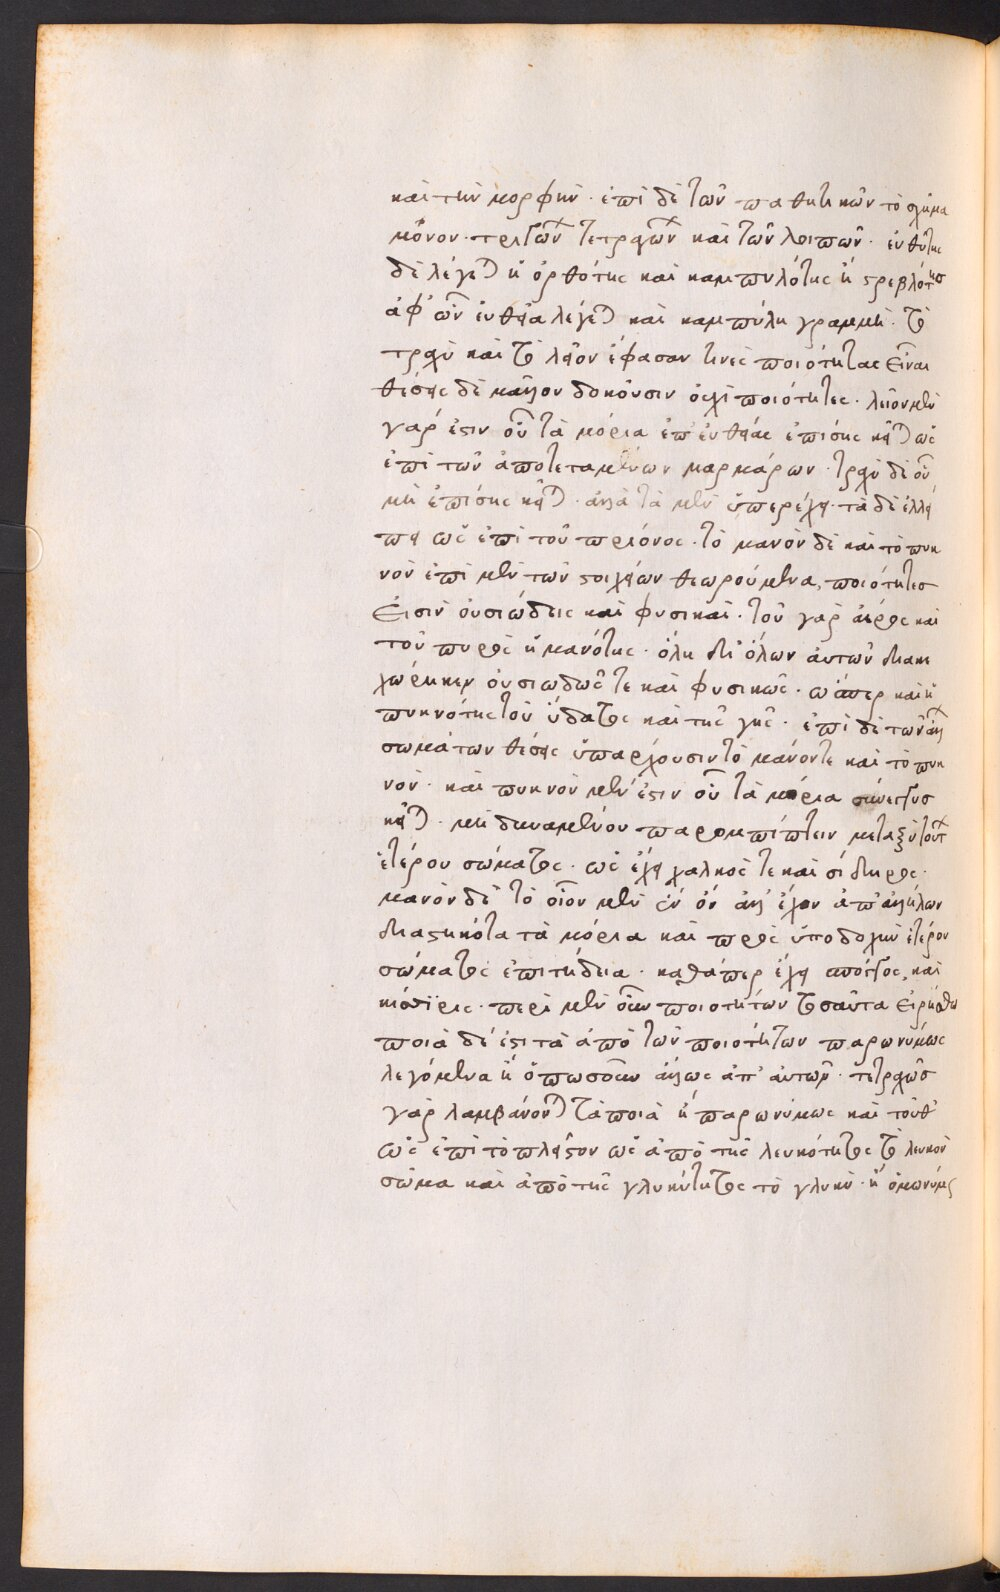 καὶ τὴν μορφήν· ἐπὶ δὲ τῶν παθητικῶν τὸ σχῆμα
μόνον· τριγών τετραγών καὶ τῶν λοιπῶν· εὐθύτης
δὲ λέγεται ἡ ὀρθότης καὶ καμπυλότης ἡ στρεβλότης
ἀφ' ὧν εὐθεῖα λέγεται καὶ καμπύλη γραμμή· τὸ
τραχὺ καὶ τὸ λεῖον ἔφασαν τινὲς ποιότητας εἶναι
θέσεις δὲ μᾶλλον δοκοῦσιν οὐχὶ ποιότητες· λεῖον μὲν
γάρ ἐστιν οὗ τὰ μόρια ἐπ' εὐθείας ἐπίσης κεῖται ὡς
ἐπὶ τῶν ἀποτεταμένων μαρμάρων· τραχὺ δὲ οὗ
μὴ ἐπίσης κεῖται· ἀλλὰ τὰ μὲν ὑπερέχει· τὰ δὲ ἐλλεί
πει ὡς ἐπὶ τοῦ πρίονος· τὸ μανὸν δὲ καὶ τὸ πυκ
νὸν ἐπὶ μὲν τῶν στοιχείων θεωρούμενα, ποιότητες
εἰσὶν οὐσιώδεις καὶ φυσικαί· τοῦ γὰρ ἀέρος καὶ
τοῦ πυρὸς ἡ μανότης· ὅλη δι' ὅλων αὐτῶν διακε
χώρηκεν οὐσιωδῶς τε καὶ φυσικῶς· ὥσπερ καὶ ἡ
πυκνότης τοῦ ὕδατος καὶ τῆς γῆς· ἐπὶ δὲ τῶν ἄλλ
σωμάτων θέσεις ὑπάρχουσιν τὸ μανόν τε καὶ τὸ πυκ
νόν· καὶ πυκνὸν μέν ἐστιν οὗ τὰ μόρια σύνεγγυς
κεῖται· μὴ δυναμένου παρεμπίπτειν μεταξὺ τούτ
ἑτέρου σώματος· ὡς ἔχει χαλκός τε καὶ σίδηρος·
μανὸν δὲ τὸ οἷον μὲν ἓν ὂν ἀλλ' ἔχον ἀπ' ἀλλήλων
διαστηκότα τὰ μόρια καὶ πρὸς ὑποδοχὴν ἑτέρου
σώματος ἐπιτήδεια· καθάπερ ἔχει σπόγγος, καὶ
κίσσηρις· περὶ μὲν οὖν ποιοτήτων τοσαῦτα εἰρήσθω
ποιὰ δέ ἐστι τὰ ἀπὸ τῶν ποιοτήτων παρωνύμως
λεγόμενα ἢ ὁπωσοῦν ἄλλως ἀπ' αὐτῶν· τετραχῶς
γὰρ λαμβάνονται τὰ ποιὰ ἢ παρωνύμως καὶ τοῦθ'
ὡς ἐπὶ τὸ πλεῖστον ὡς ἀπὸ τῆς λευκότητος τὸ λευκὸν
σῶμα καὶ ἀπὸ τῆς γλυκύτητος τὸ γλυκύ· ἢ ὁμωνύμως